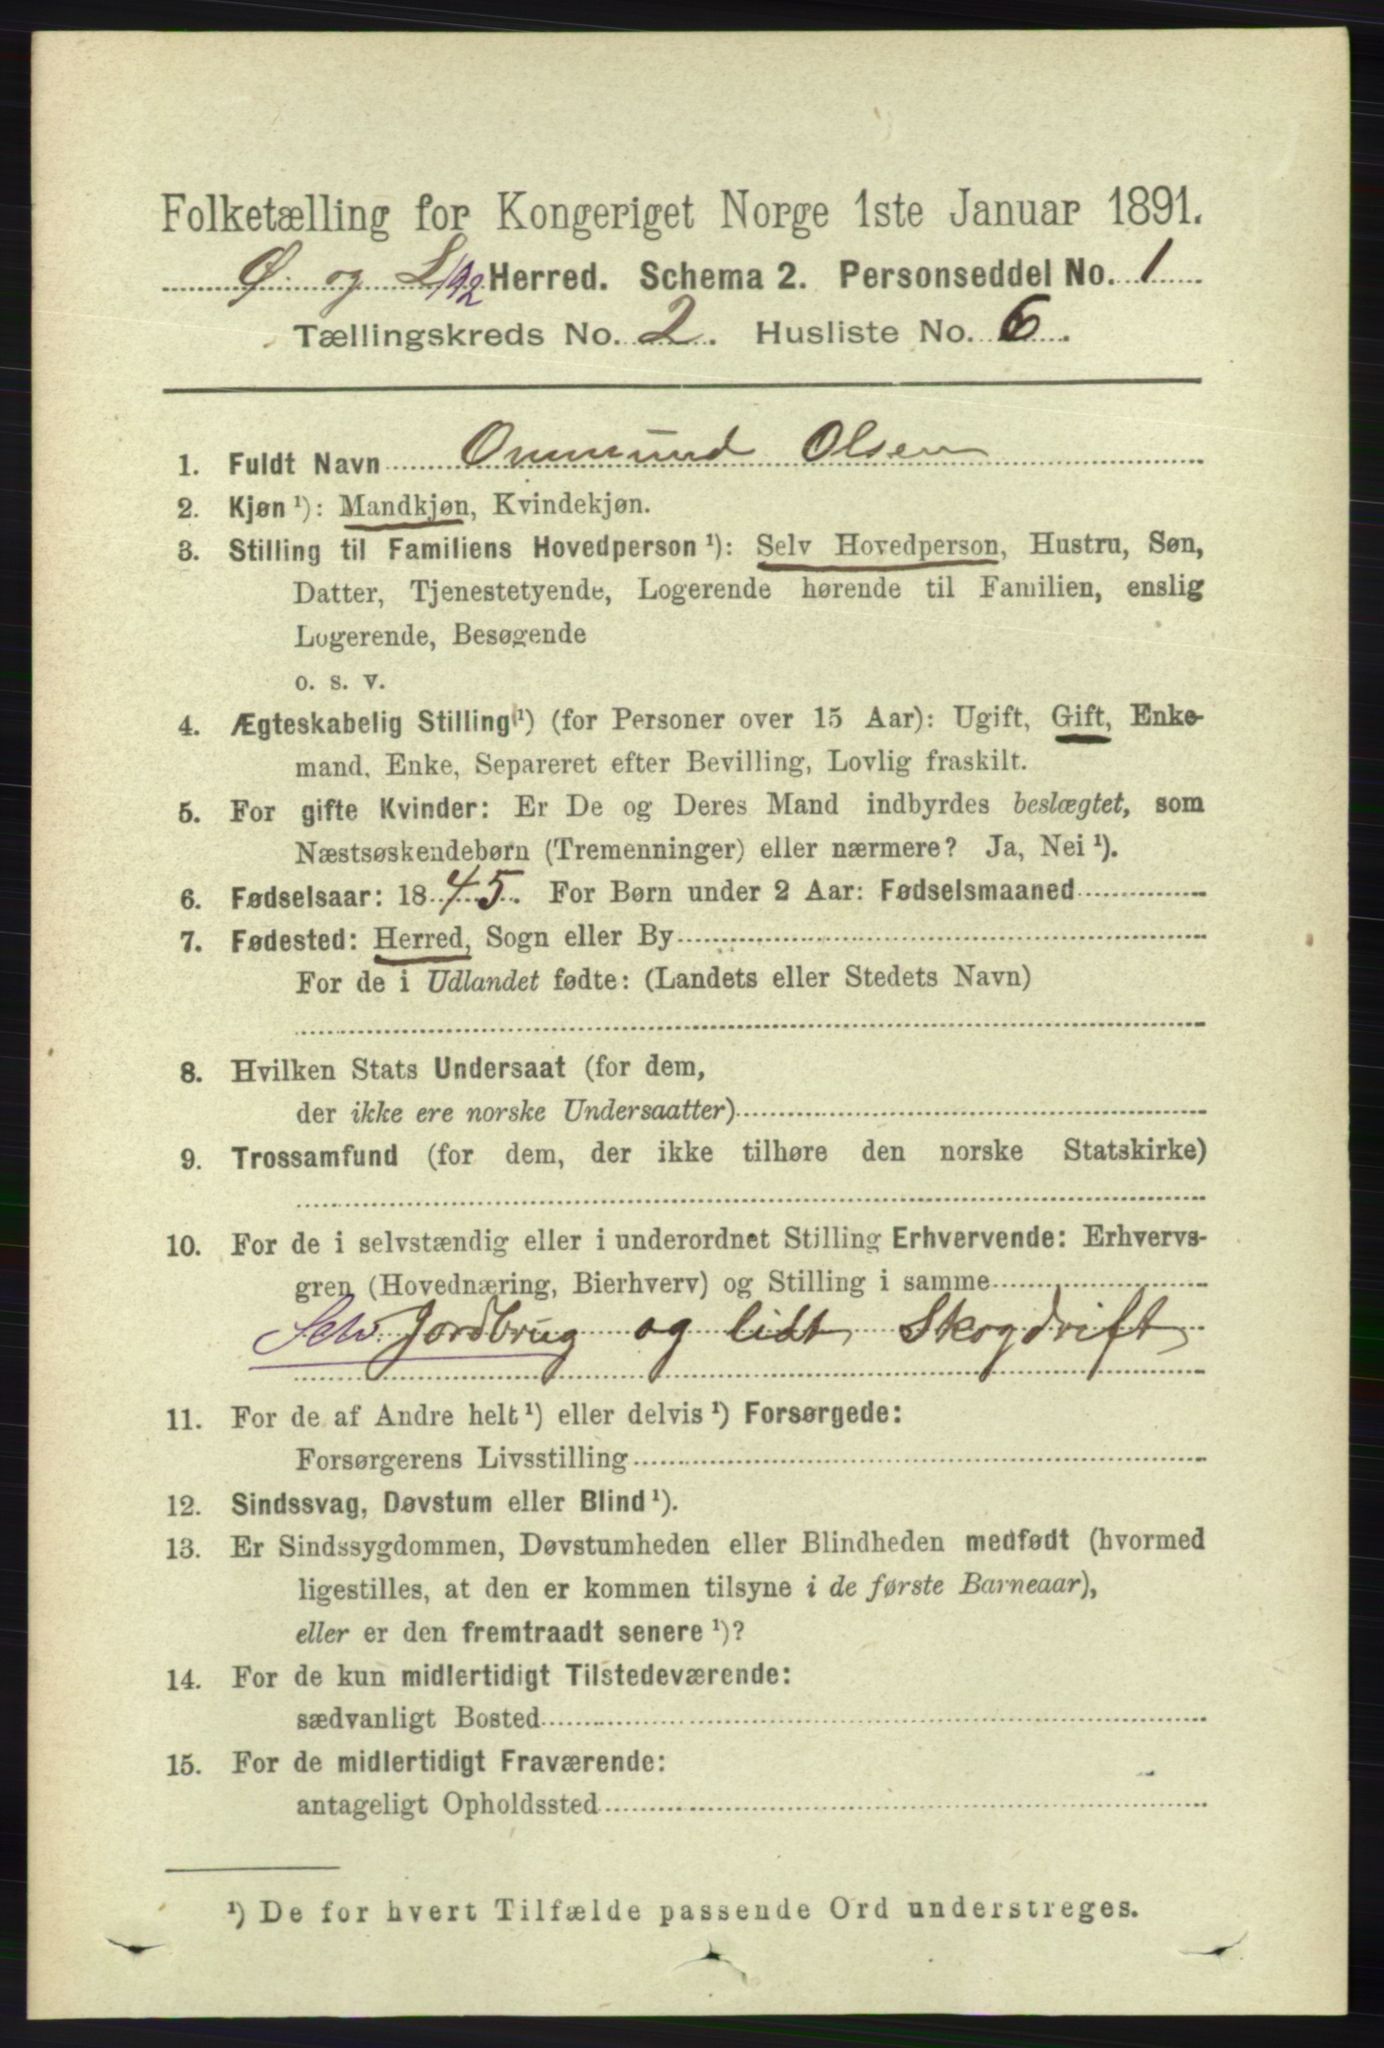 Folketælling for Kongeriget Norge 1ste Januar 1891.
Ø. og L. Herred. Schema 2. Personseddel No. 1
Tællingskreds No. 2. Husliste No. 6.
1. Fuldt Navn Ommund Olsen
2. Kjøn ¹): Mandkjøn, Kvindekjøn.
3. Stilling til Familiens Hovedperson ¹): Selv Hovedperson, Hustru, Søn,
Datter, Tjenestetyende, Logerende hørende til Familien, enslig
Logerende, Besøgende
o. s. v.
4. Ægteskabelig Stilling ¹) (for Personer over 15 Aar): Ugift, Gift, Enke-
mand, Enke, Separeret efter Bevilling, Lovlig fraskilt.
5. For gifte Kvinder: Er De og Deres Mand indbyrdes beslægtet, som
Næstsøskendebørn (Tremenninger) eller nærmere? Ja, Nei ¹).
6. Fødselsaar: 1845. For Børn under 2 Aar: Fødselsmaaned
7. Fødested: Herred, Sogn eller By
For de i Udlandet fødte: (Landets eller Stedets Navn)
8. Hvilken Stats Undersaat (for dem,
der ikke ere norske Undersaatter)
9. Trossamfund (for dem, der ikke tilhøre den norske Statskirke)
10. For de i selvstændig eller i underordnet Stilling Erhvervende: Erhvervs-
gren (Hovednæring, Bierhverv) og Stilling i samme
Selv. Jordbrug og lidt Skogdrift
11. For de af Andre helt ¹) eller delvis ¹) Forsørgede:
Forsørgerens Livsstilling
12. Sindssvag, Døvstum eller Blind ¹).
13. Er Sindssygdommen, Døvstumheden eller Blindheden medfødt (hvormed
ligestilles, at den er kommen tilsyne i de første Barneaar),
eller er den fremtraadt senere ¹)?
14. For de kun midlertidigt Tilstedeværende:
sædvanligt Bosted
15. For de midlertidigt Fraværende:
antageligt Opholdssted
¹) De for hvert Tilfælde passende Ord understreges.